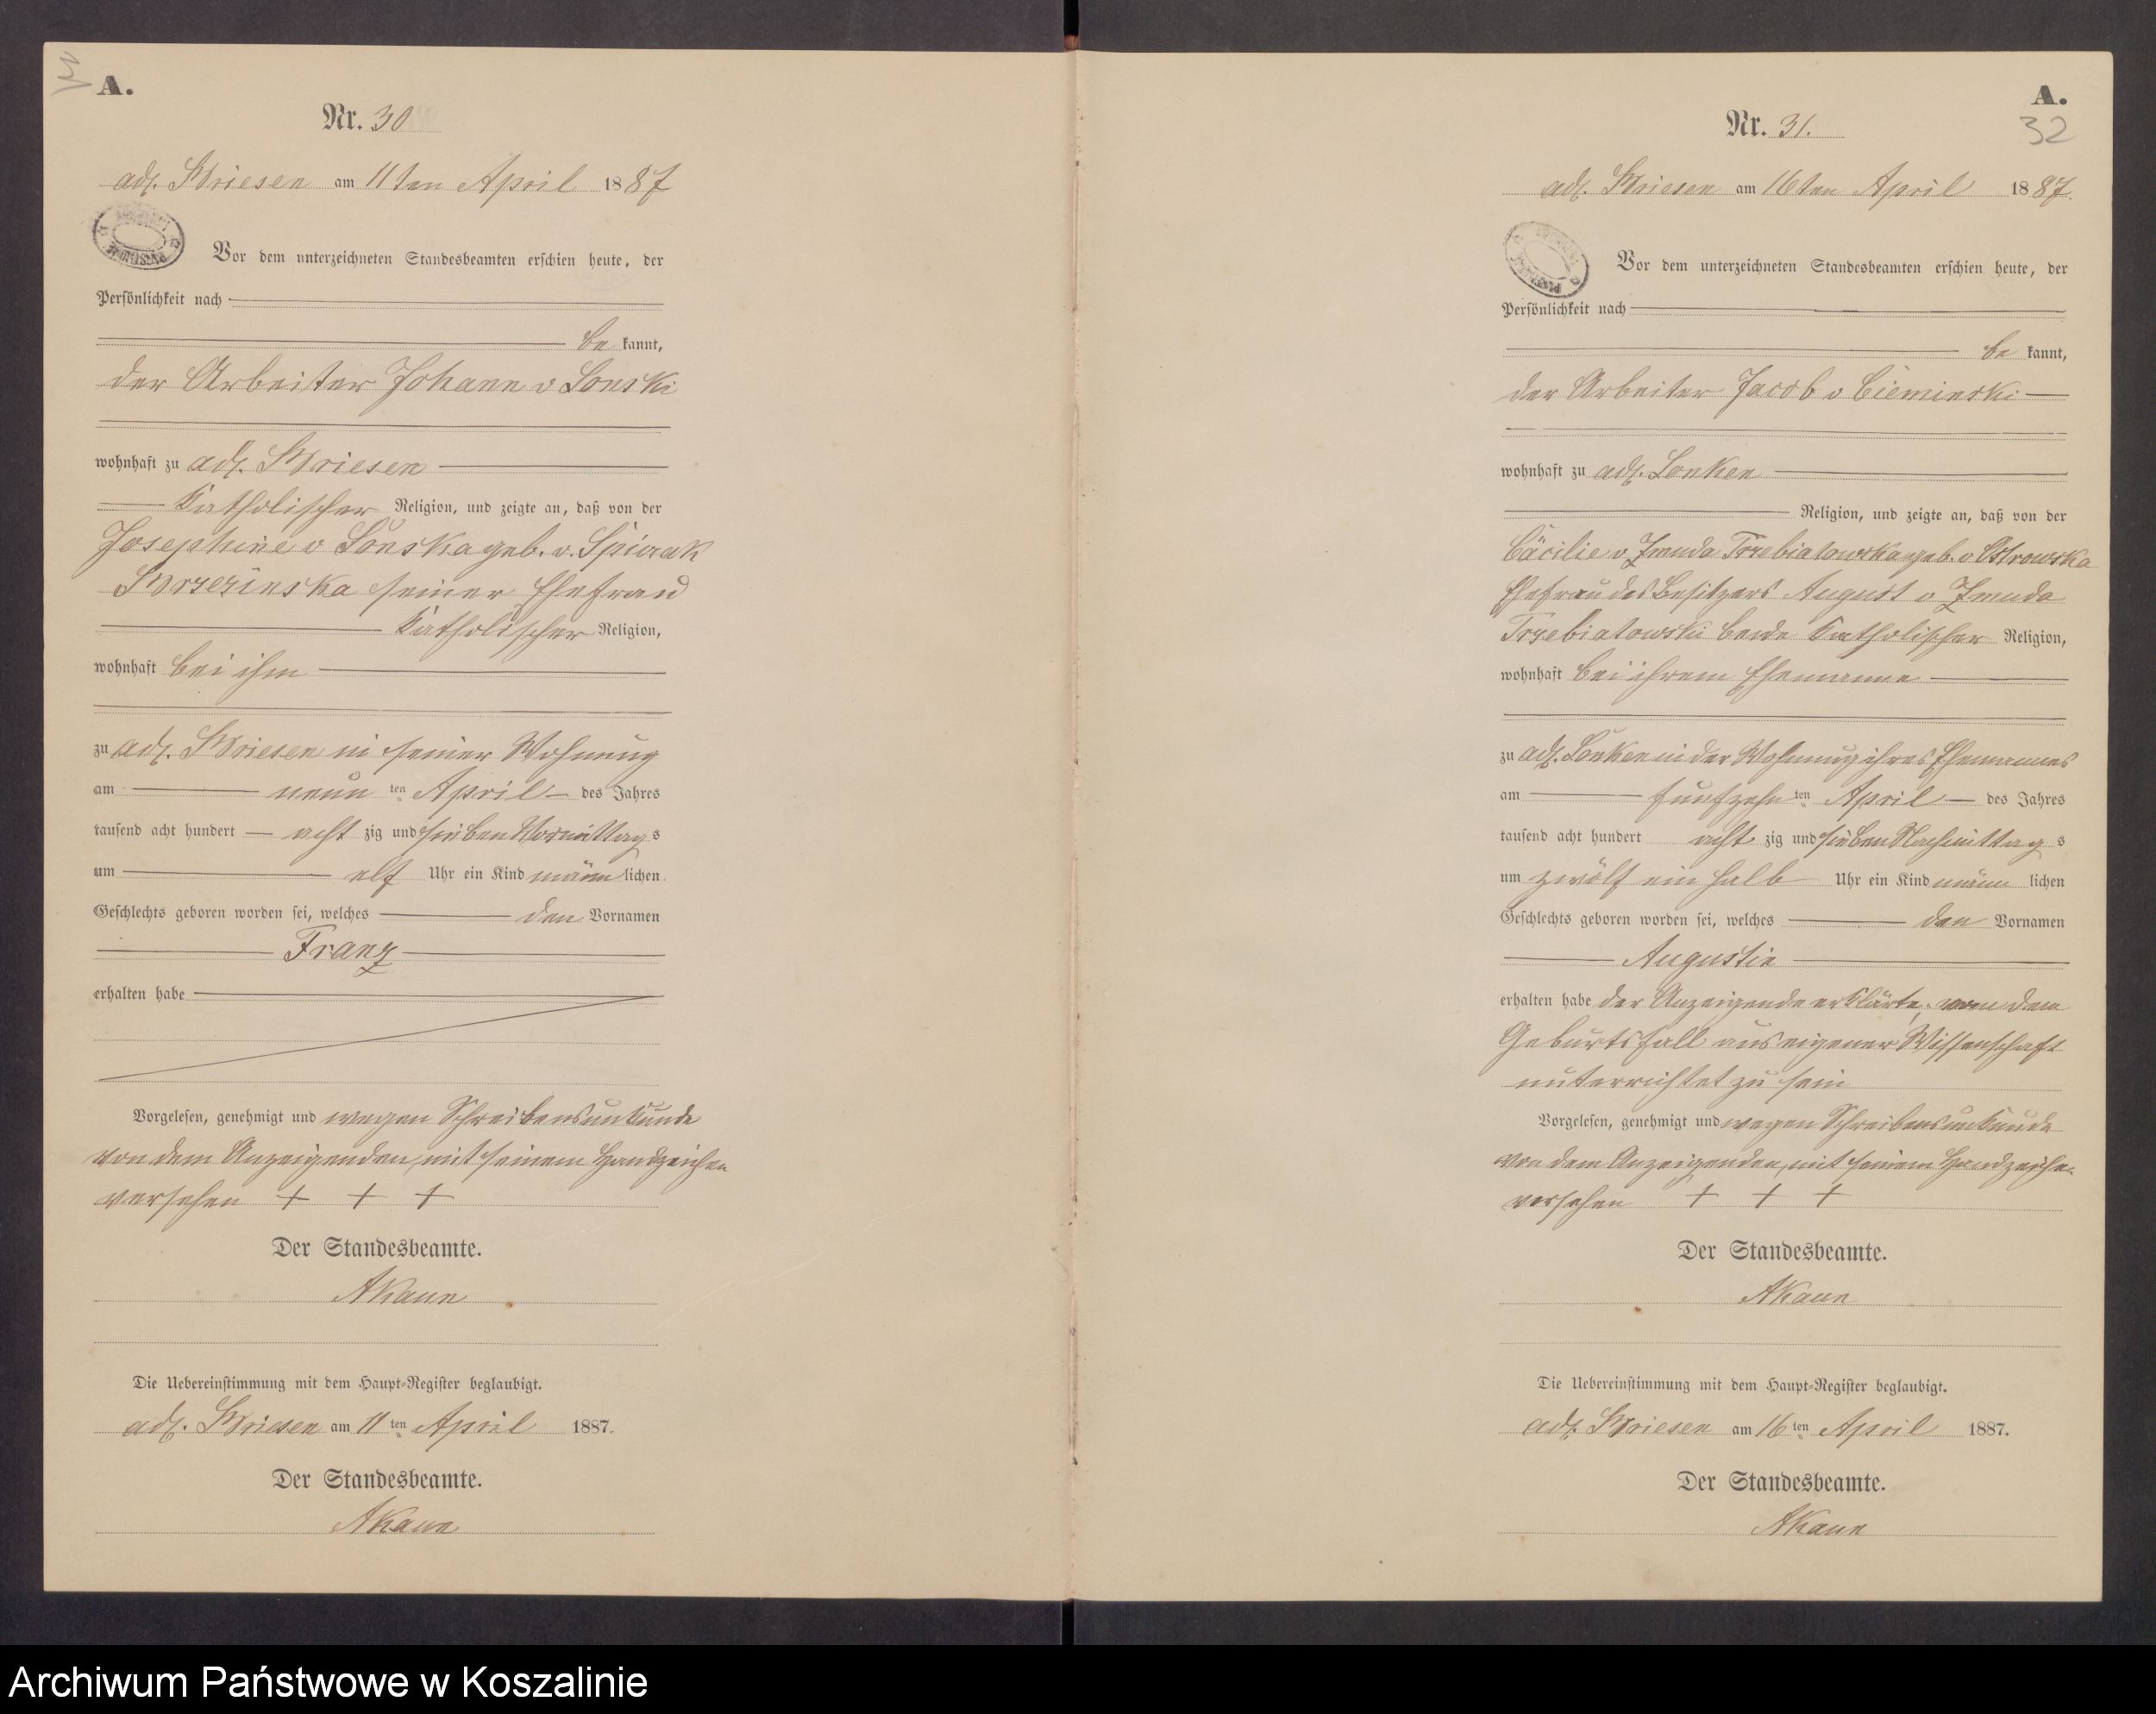 A.
Nr. 30
adl. Briesen am 11ten April 1887
Vor dem unterzeichneten Standesbeamten erschien heute, der
Persönlichkeit nach
be kannt,
der Arbeiter Johann v Lonski
wohnhaft zu adl. Briesen
Katholischer Religion, und zeigte an, daß von der
Josephine v Lonska geb. v.
seiner Ehefrau
Katholischer Religion,
wohnhaft bei ihm
zu adl. Briesen in seiner Wohnung
am neun ten April des Jahres
tausend acht hundert acht zig und sieben Vormittag s
um elf Uhr ein Kind männ lichen
Geschlechts geboren worden sei, welches den Vornamen
Franz
erhalten habe
Vorgelesen, genehmigt und wegen Schreibensunkunde
von dem Anzeigenden, mit seinem Handzeichen
versehen + + +
Der Standesbeamte.
Die Uebereinstimmung mit dem Haupt-Register beglaubigt.
adl. Briesen am 11 ten April 1887.
Der Standesbeamte.
A.
32
Nr. 31.
adl. Briesen am 16ten April 1887.
Vor dem unterzeichneten Standesbeamten erschien heute, der
Persönlichkeit nach
be kannt,
der Arbeiter Jacob v Cieminski
wohnhaft zu adl. Lonken
Religion, und zeigte an, daß von der
Cäcilie v Zmuda Trzebiatowska geb. v Ostrowska
Ehefrau des Besitzers August v Zmuda
Trzebiatowski beide Katholischer Religion,
wohnhaft bei ihrem Ehemanne
zu adl. Lonken in der Wohnung ihres Ehemannes
am fünfzehn ten April des Jahres
tausend acht hundert acht zig und sieben Nachmittag s
um zwölf ein halb Uhr ein Kind männ lichen
Geschlechts geboren worden sei, welches den Vornamen
Augustin
erhalten habe der Anzeigende erklärte, von dem
Geburtsfall aus eigener Wissenschaft
unterrichtet zu sein
Vorgelesen, genehmigt und wegen Schreibensunkunde
von dem Anzeigenden, mit seinem Handzeichen
versehen + + +
Der Standesbeamte.
Die Uebereinstimmung mit dem Haupt-Register beglaubigt.
adl. Briesen am 16 ten April 1887.
Der Standesbeamte.
Archiwum Państwowe w Koszalinie